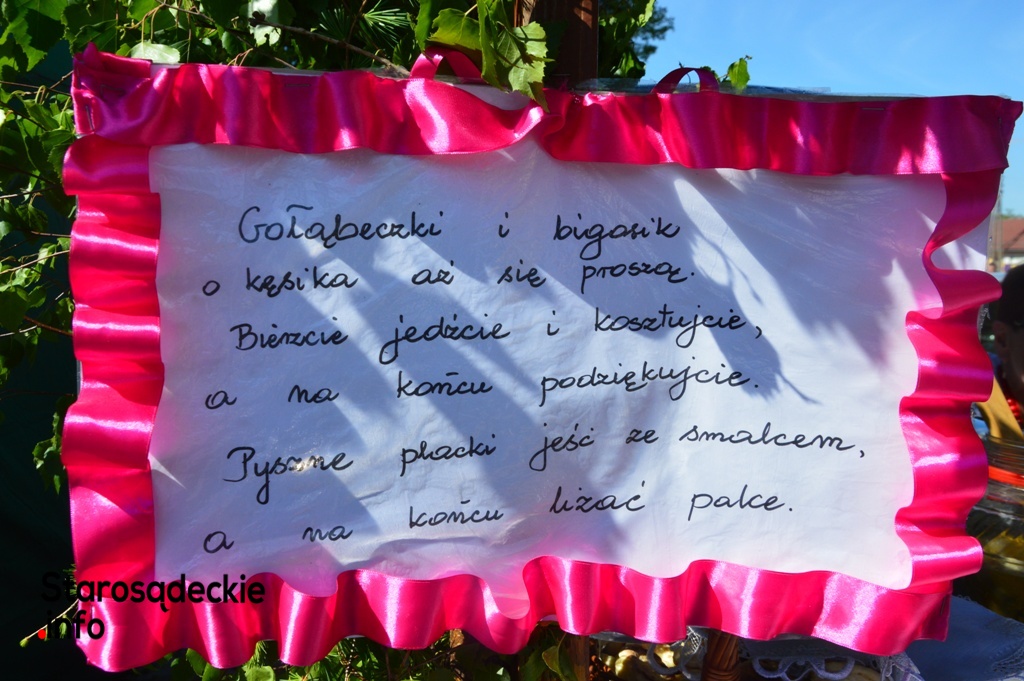 Gołąbeczki i bigosik
o kęsika aż się proszą.
Bierzcie jedźcie i kosztujcie,
a na końcu podziękujcie.
Pyszne placki jeść ze smalcem,
a na końcu lizać palce.
Starosądeckie
info